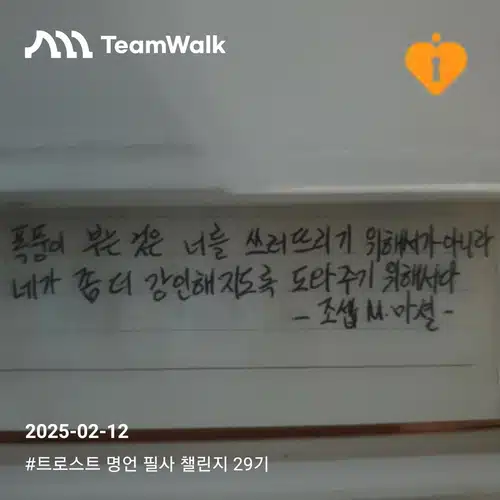 TeamWalk
폭풍이 부는 것은 너를 쓰러뜨리기 위해서가 아니라
네가 좀 더 강인해지도록 도와주기 위해서다
- 조셉 M. 마셜 -
2025-02-12
#트로스트 명언 필사 챌린지 29기